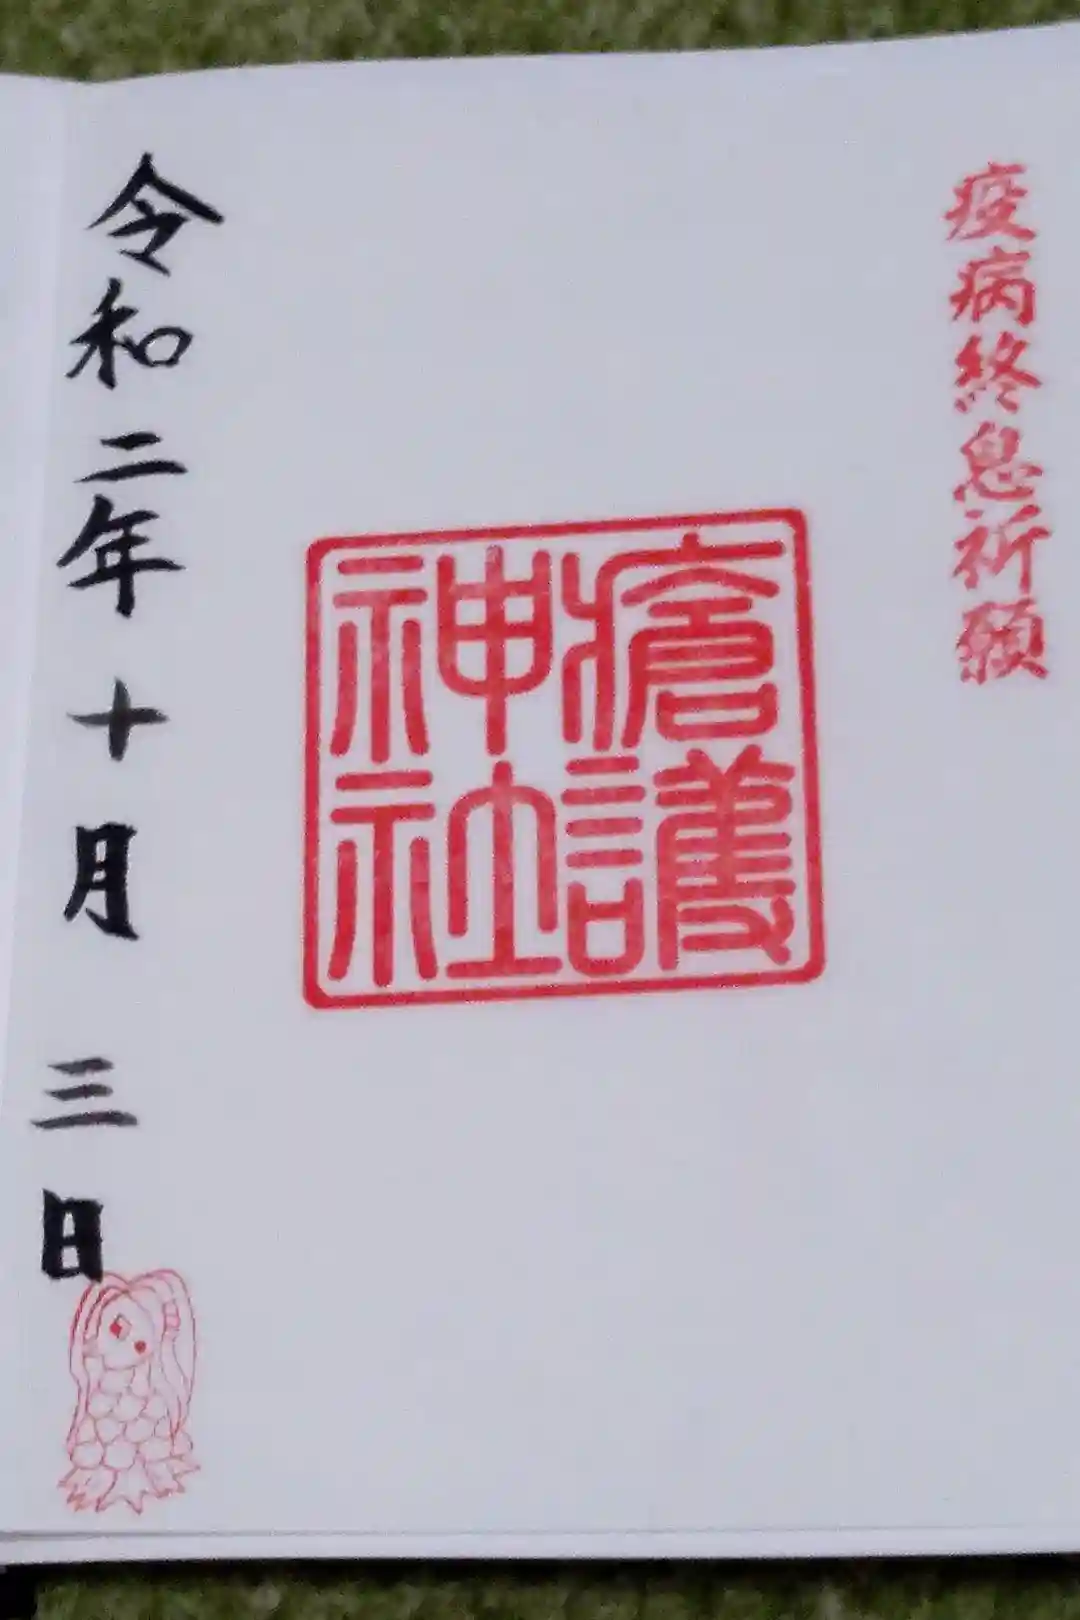 疫病終息祈願
瘡護
神社
令和二年十月三日